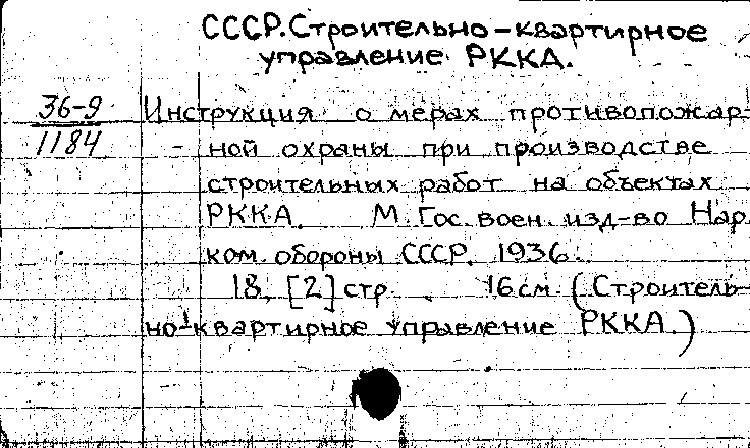 СССР. Строительно-квартирное
управление РККА.
36-9
1184
Инструкция о мерах противопожар-
ной охраны при производстве
строительных работ на объектах
РККА. М. Гос. воен. изд-во Нар.
ком. обороны СССР. 1936.
18, [2] стр. 16 см. (Строитель-
но-квартирное управление РККА.)